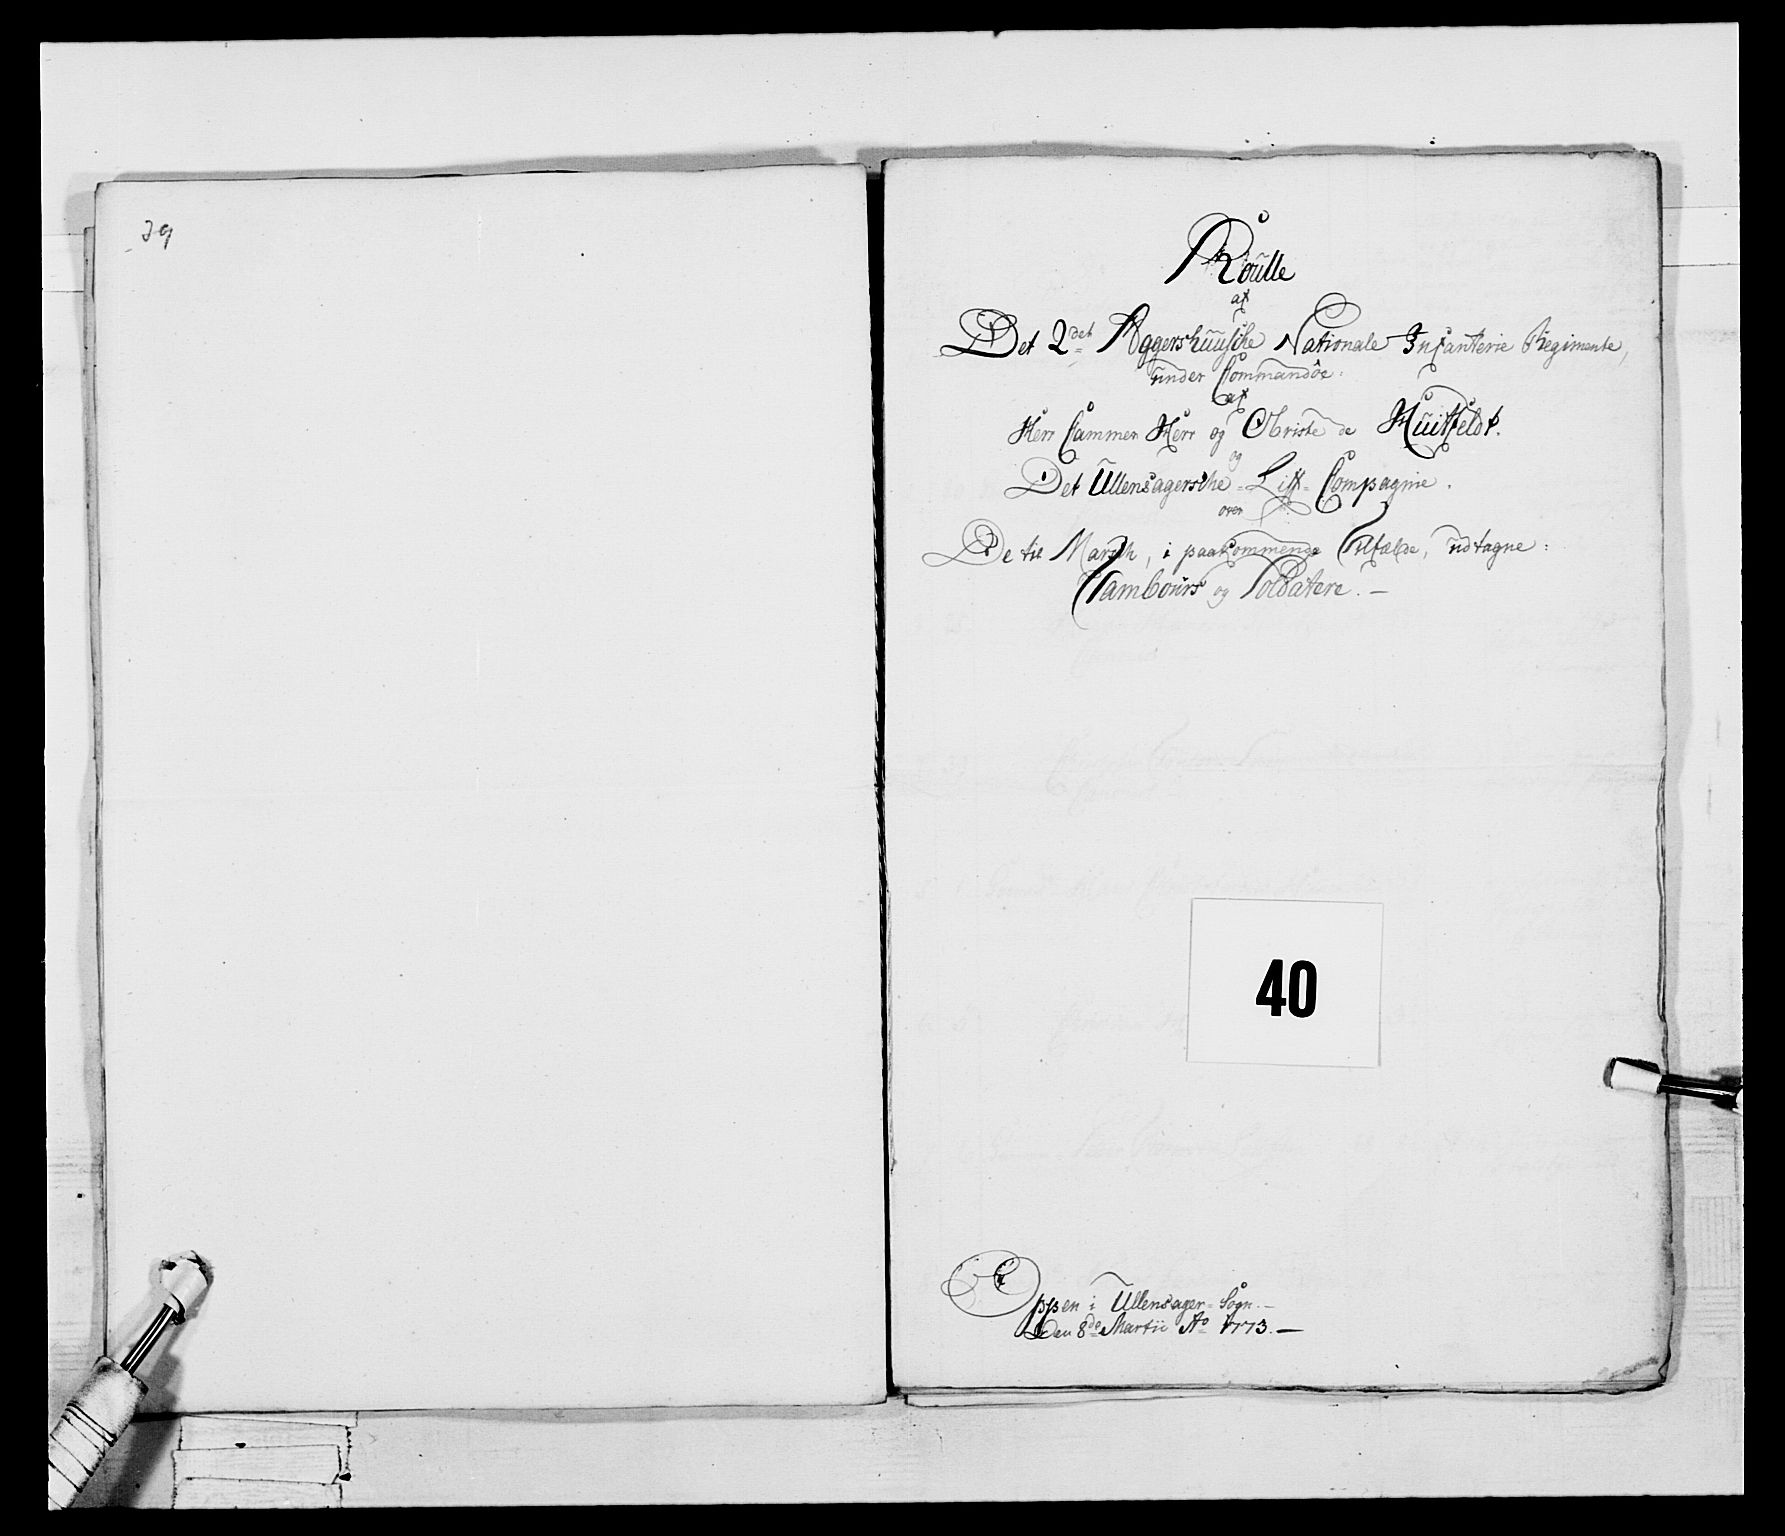 39
Roulle
af
Det 2det Aggershuusche Nationale Infanterie Regimente,
under Commandoe.
af
Herr Cammer Herr og Obriste de Huitfeldt.
og
Det Ullensagersche Lif Compagnie.
over
De til March, i paakommende Tilfælde, udtagne:
Tambours og Soldatere. —
40
i Ullensager Sogn. —
Den 8de Martii Ao 1773. —